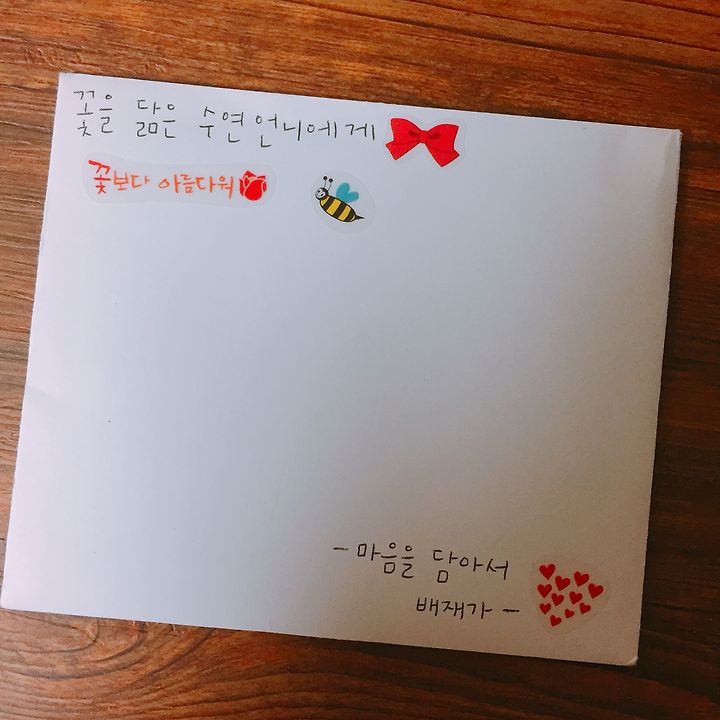 꽃을 닮은 수연언니에게
꽃보다 아름다워
-마음을 담아서
배재가-